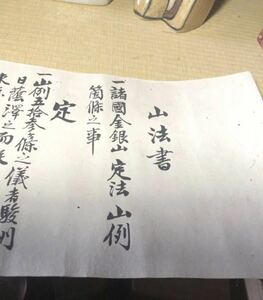 山法書
一諸國金銀山定法山例
箇條之事
定
一山例五拾参ヶ條之儀者駿州
日蔭澤之而